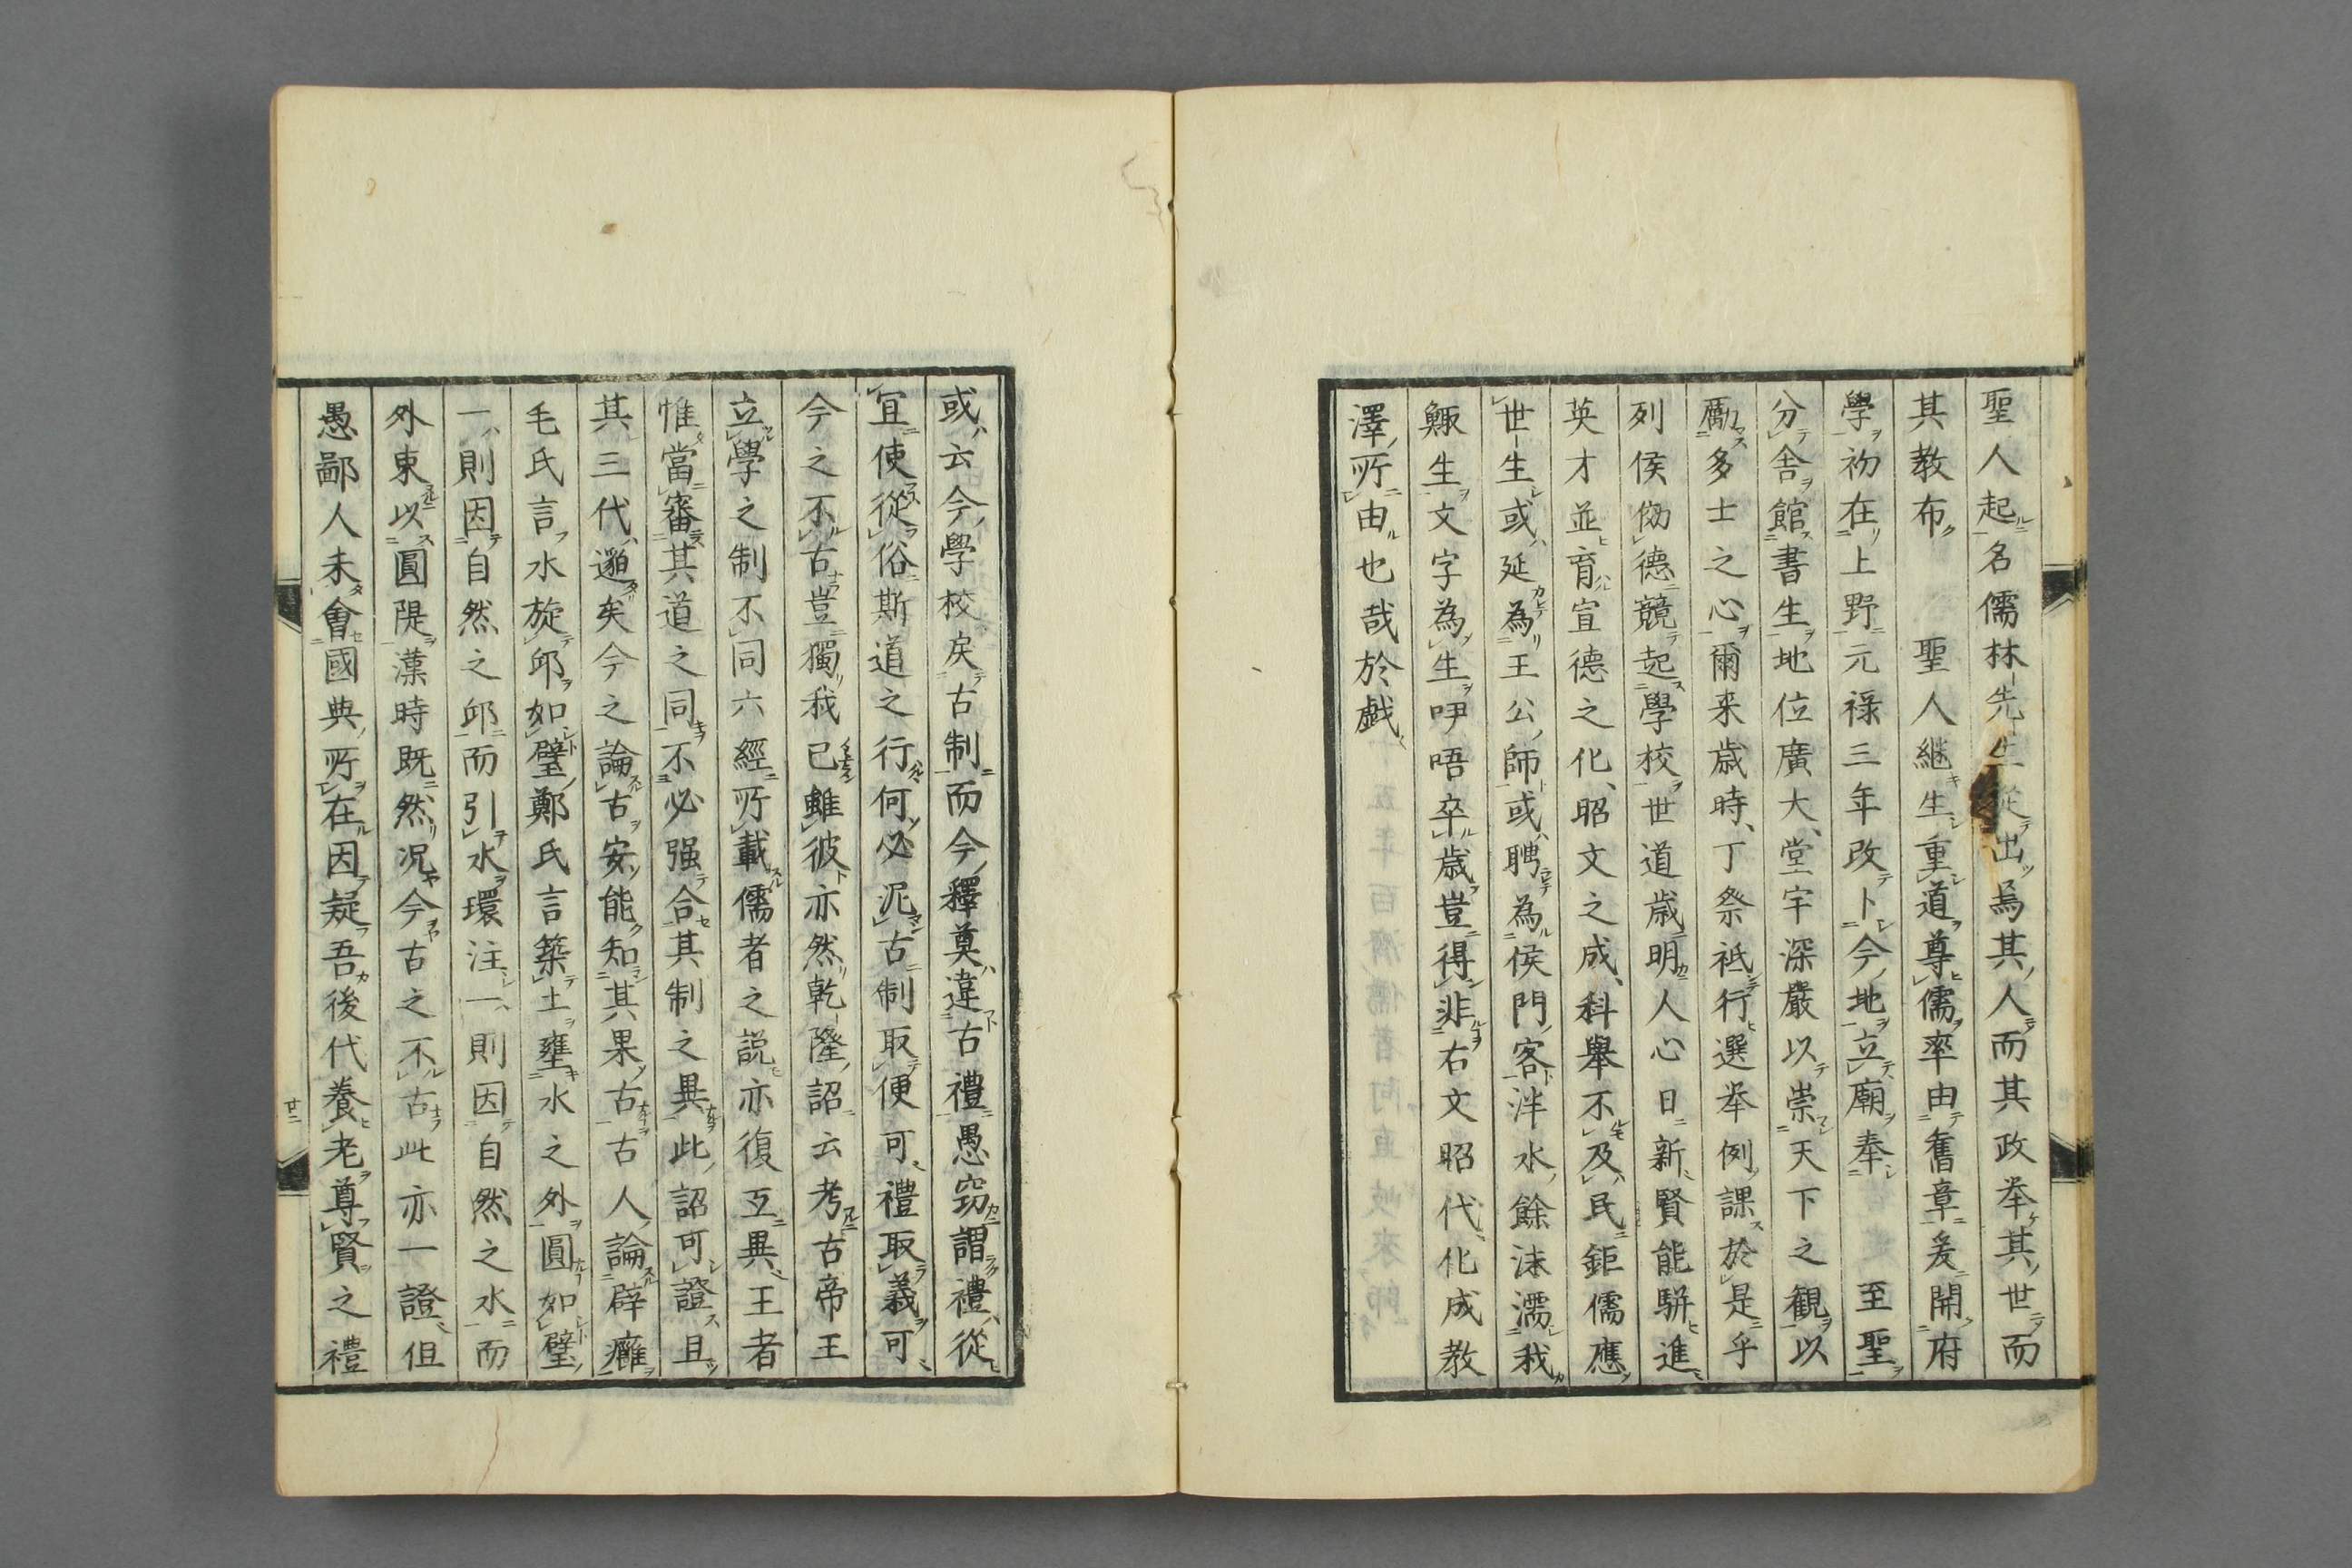 聖人起名儒林先生從出焉其人而其政举其世而
其教布　聖人継生重道尊儒率由舊章爰開府
學初在上野元禄三年改卜今地立廟奉　至聖
分舎館書生地位廣大堂宇深嚴以崇天下之観以
勵多士之心爾来歳時丁祭祗行選举例課於是乎
列侯傚德競起學校世道歳明人心日新賢能駢進
英才並育宣德之化昭文之成科舉不及民鉅儒應
世生或延為王公師或聘為侯門客泮水餘沫濡我
鯫生文字為生吚唔卒歳豈得非右文昭代化成教
澤所由也哉於戯
或云今學校戾古制而今釋奠違古禮愚窃謂禮從
宜使從俗斯道之行何必泥古制取便可禮取義可
今之不古豈獨我已雖彼亦然乾隆詔云考古帝王
立學之制不同六經所載儒者之説亦復互異王者
惟當審其道之同不必强合其制之異此詔可證且
其三代邈矣今之論古安能知其果古古人論辟癰
毛氏言水旋邱如璧鄭氏言築土壅水之外圓如璧
一則因自然之邱而引水環注一則因自然之水而
外東以圓隄漢時既然况今古之不古此亦一證但
愚鄙人未會國典所在因疑吾後代養老尊賢之禮
廿二